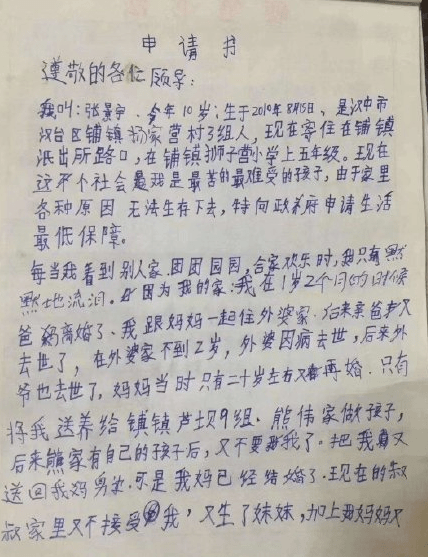 申请书
尊敬的各位领导：
我叫：张景宇、今年10岁；生于2010年8月15日、是汉中市
汉台区铺镇杨家营村3组人，现在寄住在铺镇
派出所路口，在铺镇狮子营小学上五年级。现在
这个社会我是最苦的最难受的孩子，由于家里
各种原因 无法生存下去，特向政府申请生活
最低保障。
每当我看到别人家团团圆圆，合家欢乐时，我只有默
默地流泪。因为我的家：我在1岁2个月的时候
爸妈离婚了、我跟妈妈一起住外婆家．后来亲爸爸又
去世了，在外婆家不到2岁，外婆因病去世，后来外
爷也去世了，妈妈当时只有二十岁左右又再婚．只有
将我送养给镇镇芦坝9组．熊伟家做孩子，
后来熊家有自己的孩子后，又不要我了．把我又
送回我妈身边．可是我妈已经结婚了．现在的叔
叔家里又不接受我，又生了妹妹，加上妈妈又